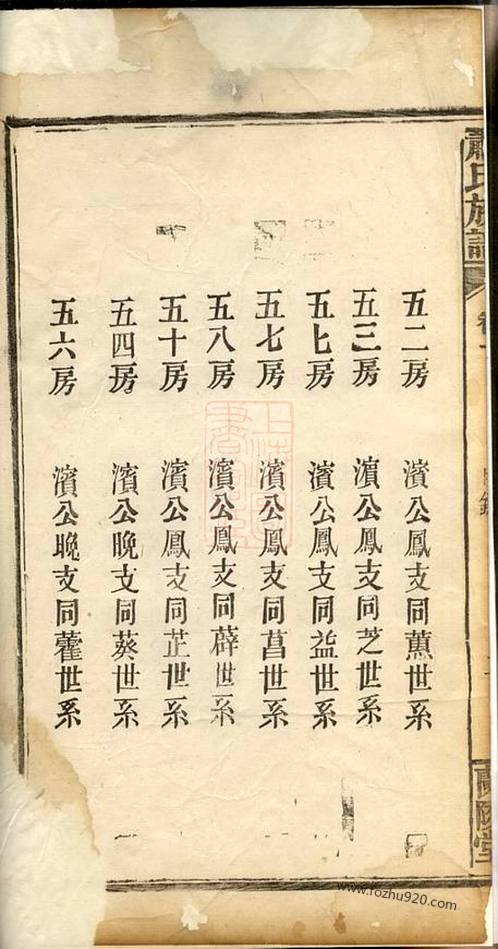 蕭氏族譜
卷一
目錄
蘭陵堂
五二房 濱公鳳支同薫世系
五三房 濱公鳳支同芝世系
五七房 濱公鳳支同益世系
五七房 濱公鳳支同菖世系
五八房 濱公鳳支同薜世系
五十房 濱公鳳支同芷世系
五四房 濱公晚支同葵世系
五六房 濱公晚支同藿世系
www.fozhu920.com